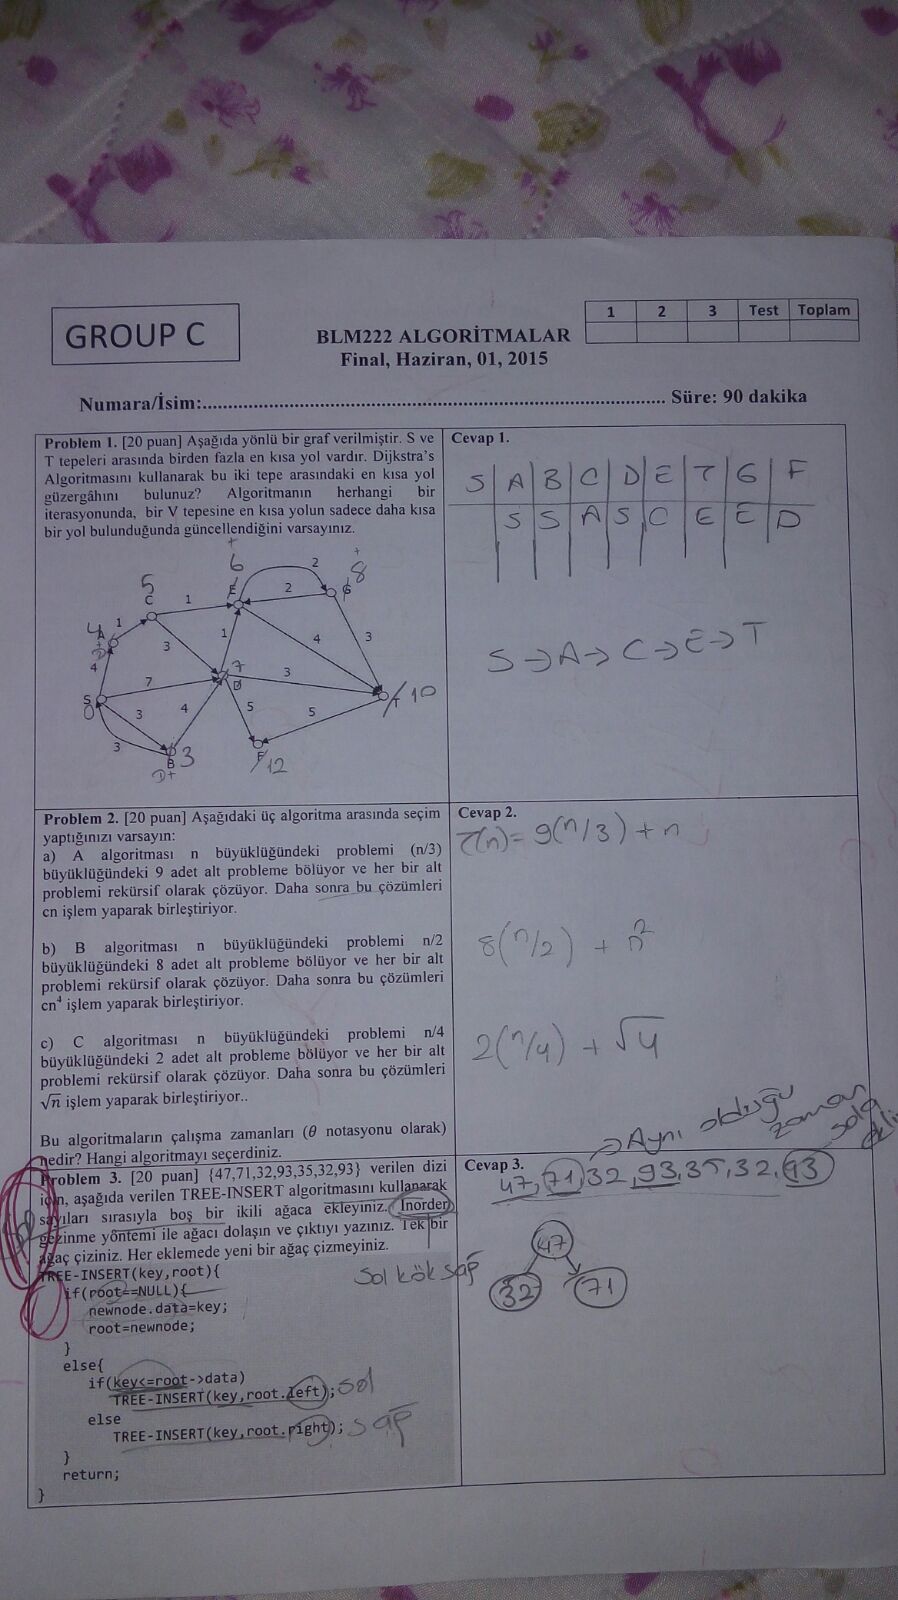 GROUP C
BLM222 ALGORİTMALAR
Final, Haziran, 01, 2015
1 2 3 Test Toplam
Numara/İsim:.......................................................................................... Süre: 90 dakika
Problem 1. [20 puan] Aşağıda yönlü bir graf verilmiştir. S ve
T tepeleri arasında birden fazla en kısa yol vardır. Dijkstra's
Algoritmasını kullanarak bu iki tepe arasındaki en kısa yol
güzergâhını bulunuz? Algoritmanın herhangi bir
iterasyonunda, bir V tepesine en kısa yolun sadece daha kısa
bir yol bulunduğunda güncellendiğini varsayınız.
6 2 8
5 E 2 G
C 1
4 1
A 3 1 4 3
4 7 7 3 10
S D
0 3 4 5 5 T
3 3 F
B 12
Cevap 1.
S A B C D E T G F
S S A S C E E D
S → A → C → E → T
Problem 2. [20 puan] Aşağıdaki üç algoritma arasında seçim
yaptığınızı varsayın:
a) A algoritması n büyüklüğündeki problemi (n/3)
büyüklüğündeki 9 adet alt probleme bölüyor ve her bir alt
problemi rekürsif olarak çözüyor. Daha sonra bu çözümleri
cn işlem yaparak birleştiriyor.
b) B algoritması n büyüklüğündeki problemi n/2
büyüklüğündeki 8 adet alt probleme bölüyor ve her bir alt
problemi rekürsif olarak çözüyor. Daha sonra bu çözümleri
cn⁴ işlem yaparak birleştiriyor.
c) C algoritması n büyüklüğündeki problemi n/4
büyüklüğündeki 2 adet alt probleme bölüyor ve her bir alt
problemi rekürsif olarak çözüyor. Daha sonra bu çözümleri
√n işlem yaparak birleştiriyor..
Bu algoritmaların çalışma zamanları (θ notasyonu olarak)
nedir? Hangi algoritmayı seçerdiniz.
Cevap 2.
T(n)= 9(n/3) + n
8(n/2) + n²
2(n/4) + √4
→ Aynı olduğu
zaman
sola
Problem 3. [20 puan] {47,71,32,93,35,32,93} verilen dizi
için, aşağıda verilen TREE-INSERT algoritmasını kullanarak
sayıları sırasıyla boş bir ikili ağaca ekleyiniz. İnorder
gezinme yöntemi ile ağacı dolaşın ve çıktıyı yazınız. Tek bir
ağaç çiziniz. Her eklemede yeni bir ağaç çizmeyiniz.
TREE-INSERT(key,root){
if(root==NULL){
newnode.data=key;
root=newnode;
}
else{
if(key<=root->data)
TREE-INSERT(key,root.left); sol
else
TREE-INSERT(key,root.right); sağ
}
return;
}
sol kök sağ
Cevap 3.
47, 71, 32, 93, 35, 32, 93
47
32 71